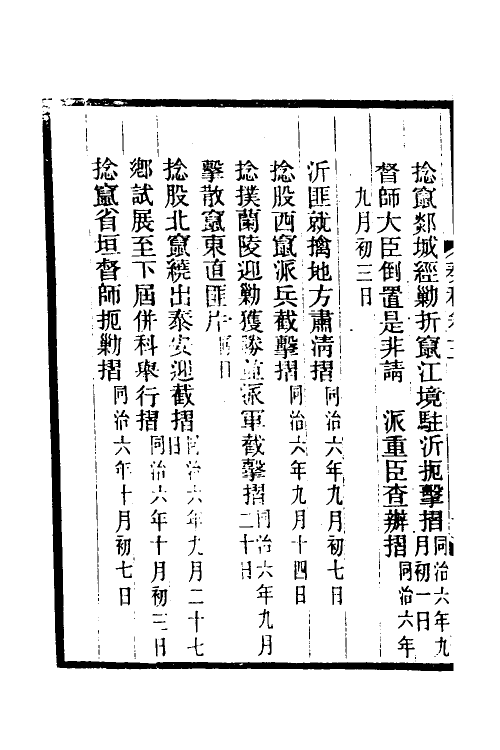 捻竄郯城經勦折竄江境駐沂扼擊摺同治六年九月初一日
督師大臣倒置是非請　派重臣查辦摺同治六年
九月初三日
沂匪就擒地方肅淸摺同治六年九月初七日
捻股西竄派兵截擊摺同治六年九月十四日
捻撲蘭陵迎勦獲勝並派軍截擊摺同治六年九月二十日
擊散竄東直匪片同日
捻股北竄繞出泰安迎截摺同治六年九月二十七日
鄕試展至下屆併科舉行摺同治六年十月初三日
捻竄省垣督師扼勦摺同治六年十月初七日